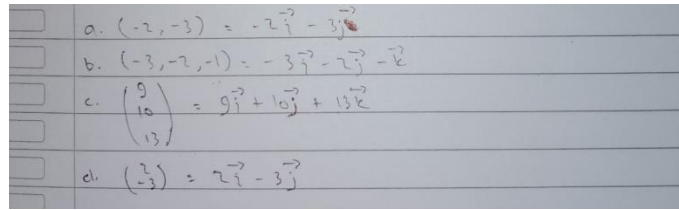 a. (-2, -3) = -2i⃗ - 3j⃗
b. (-3, -2, -1) = -3i⃗ - 2j⃗ - k⃗
c. (9
10
13) = 9i⃗ + 10j⃗ + 13k⃗
d. (2
-3) = 2i⃗ - 3j⃗